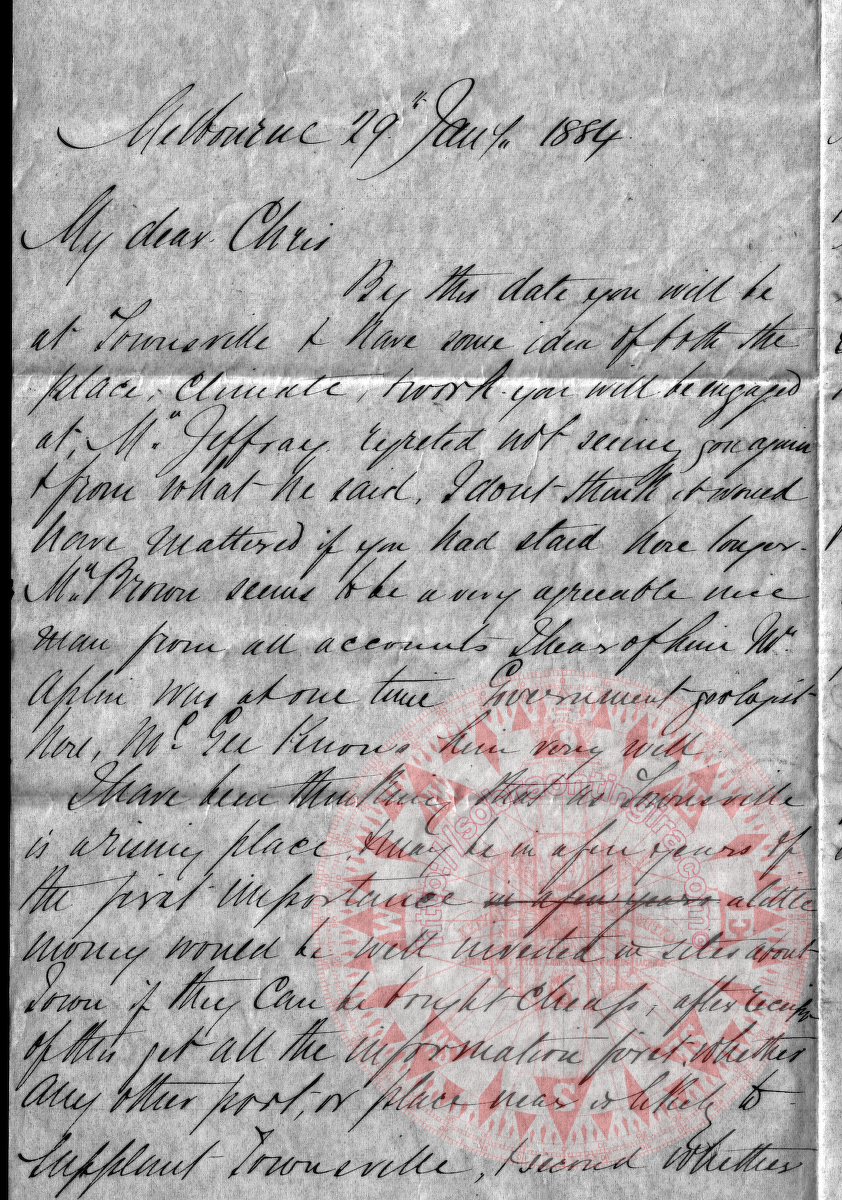 Melbourne 29" Jany. 1884
My dear Chris
By this date you will be
at Townsville & have some idea of both the
place, climate, & work you will be engaged
at, Mr. Jeffray regreted not seeing you again
& from what he said, I dont think it would
have mattered if you had staid here longer.
Mr. Brown seems to be a very agreeable nice
man from all accounts I hear of him Mr.
Aplin was at one time Government geologist
here, Mc. Gee Knows him very well
I have been thinking that as Townsville
is a rising place, & may be in a few years of
the first importance in a few years a little
money would be well invested in sites about
Town if they can be bought cheap, after receipt
of this get all the information first, whether
any other port, or place near is likely to
supplant Townsville, & second Whether